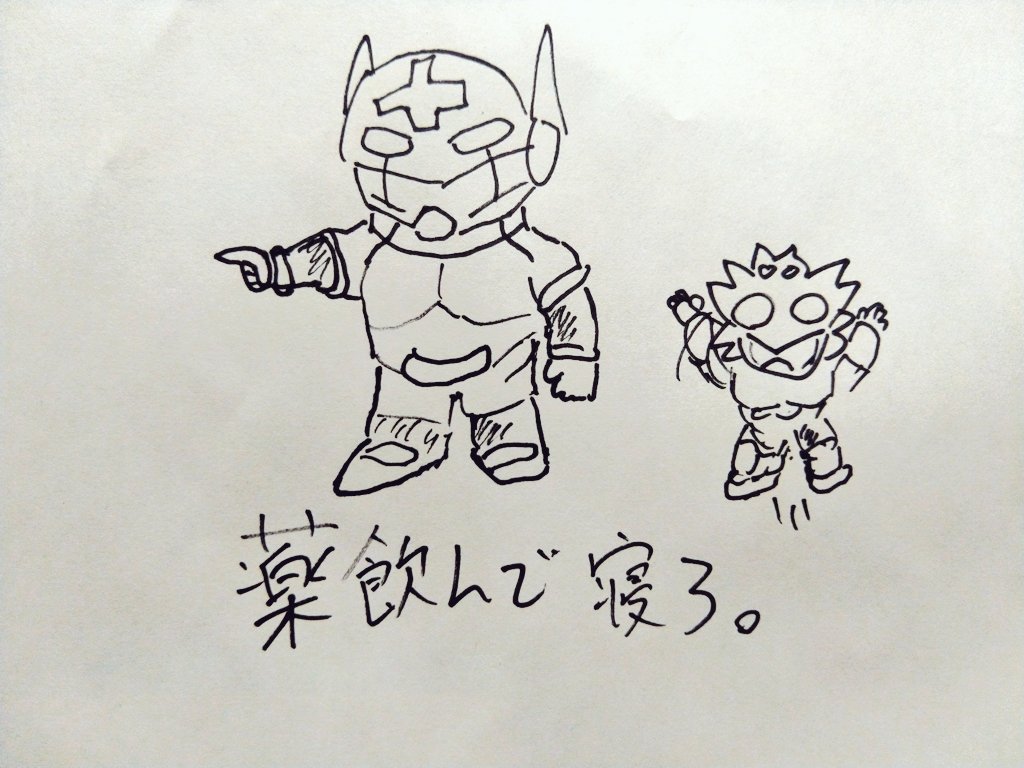 薬飲んで寝ろ。